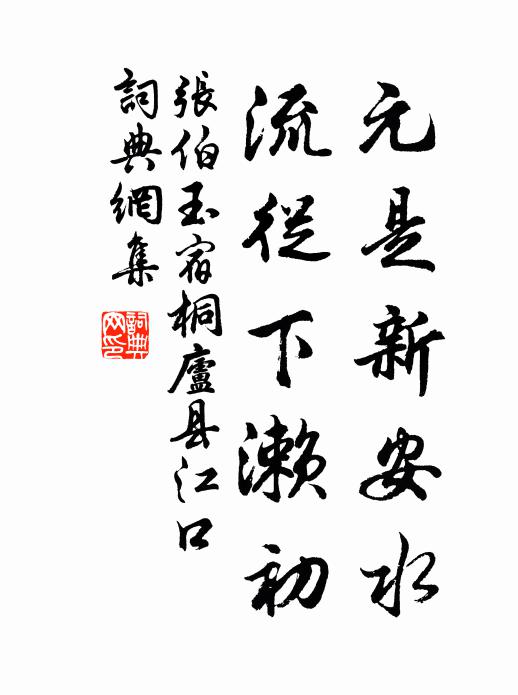 元是新安水
流從下濑初
張伯玉宿桐廬县江口
詞典網集
詞典
网印